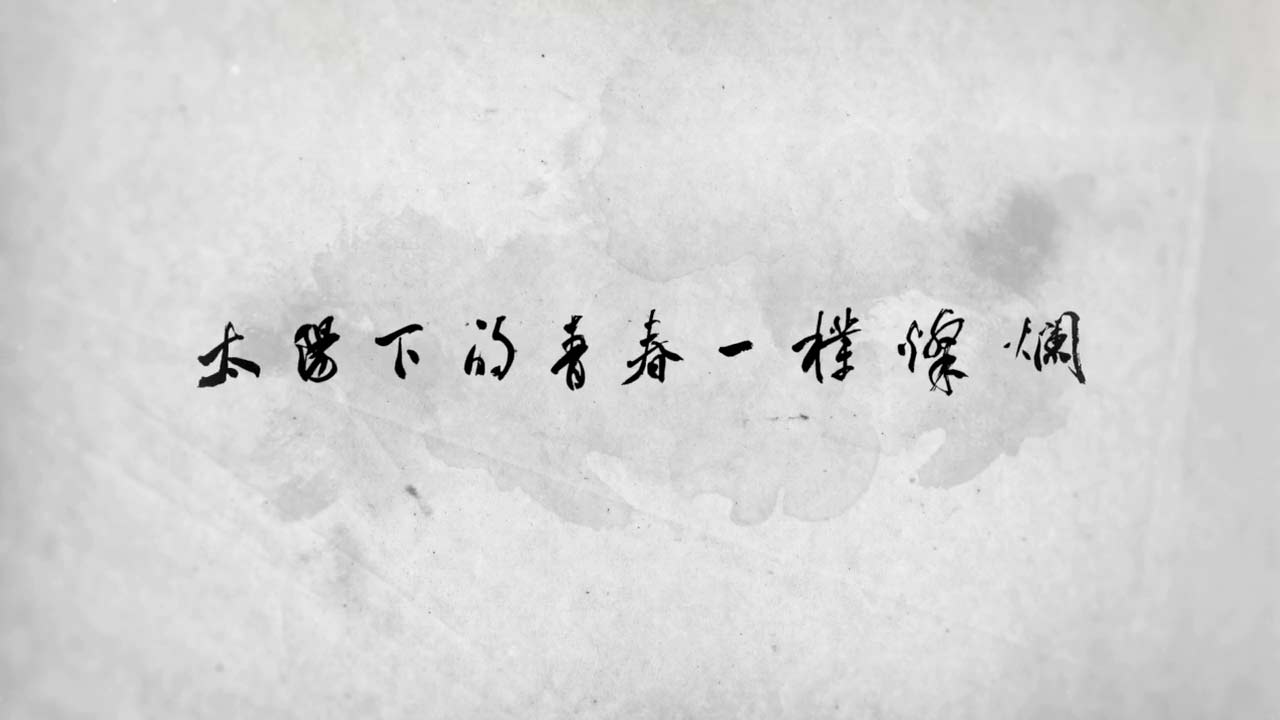 太陽下的青春一樣燦爛